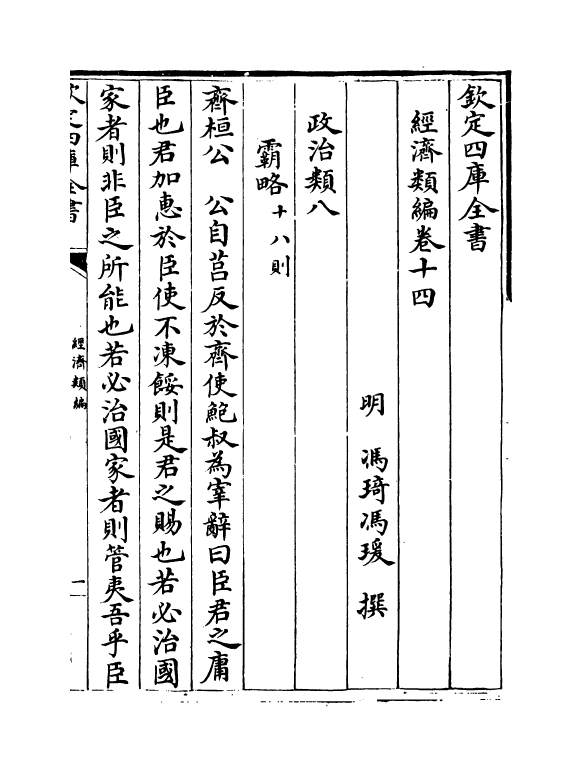 欽定四庫全書
經濟類編卷十四
明　馮琦馮瑗　撰
政治類八
霸略十八則
齊桓公　公自莒反於齊使鮑叔為宰辭曰臣君之庸
臣也君加惠於臣使不凍餒則是君之賜也若必治國
家者則非臣之所能也若必治國家者則管夷吾乎臣
欽定四庫全書
經濟類編
一